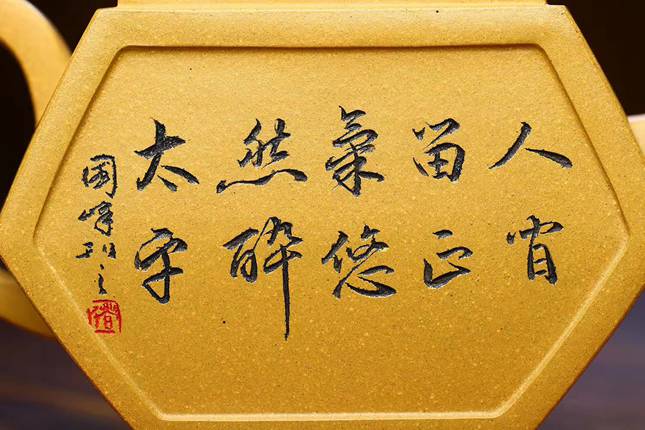 人間
留正
氣悠
然醉
太平
國峰刻之